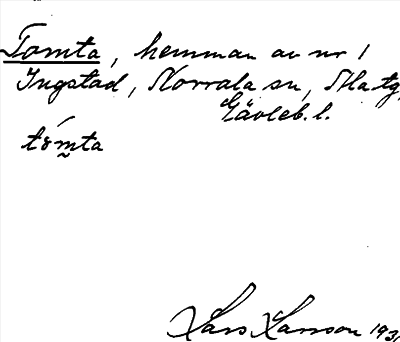 Tomta, hemman av nr 1
Ingstad, Norrala sn, Ala tg,
Gävleb. l.
tómta
Lars Larsson 193